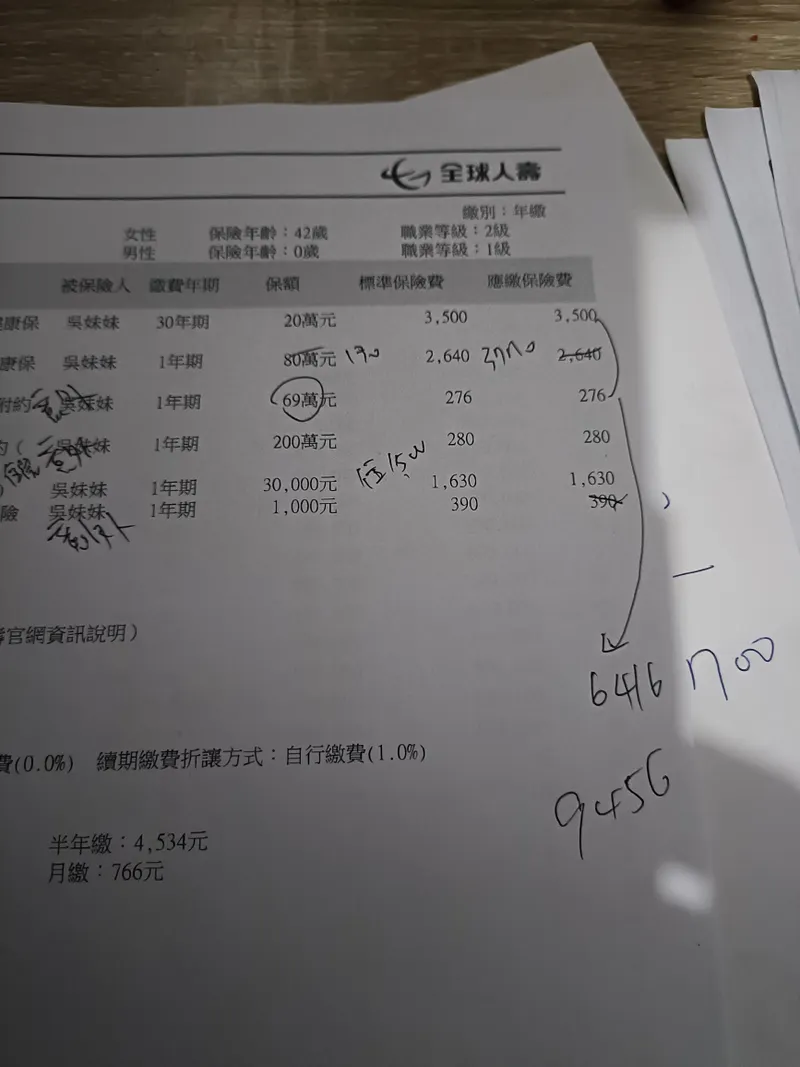 全球人壽
繳別：年繳
女性 保險年齡：42歲 職業等級：2級
男性 保險年齡：0歲 職業等級：1級
被保險人 繳費年期 保額 標準保險費 應繳保險費
康保 吳妹妹 30年期 20萬元 3,500 3,500
康保 吳妹妹 1年期 80萬元 170 2,640 2,640
附約 吳妹妹 1年期 69萬元 276 276
約（ 吳妹妹 1年期 200萬元 280 280
吳妹妹 1年期 30,000元 1,630 1,630
險 吳妹妹 1年期 1,000元 390 390
官網資訊說明）
6416 700
費(0.0%) 續期繳費折讓方式：自行繳費(1.0%)
9456
半年繳：4,534元
月繳：766元